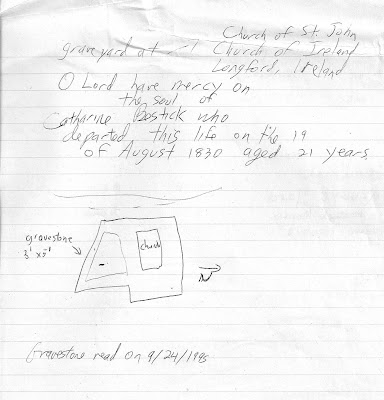 Church of St. John
graveyard at Church of Ireland
Longford, Ireland
O Lord have mercy on
the soul of
Catharine Bostick who
departed this life on the 19
of August 1830 aged 21 years
gravestone
3' x5'
church
N
Gravestone read on 9/24/1995